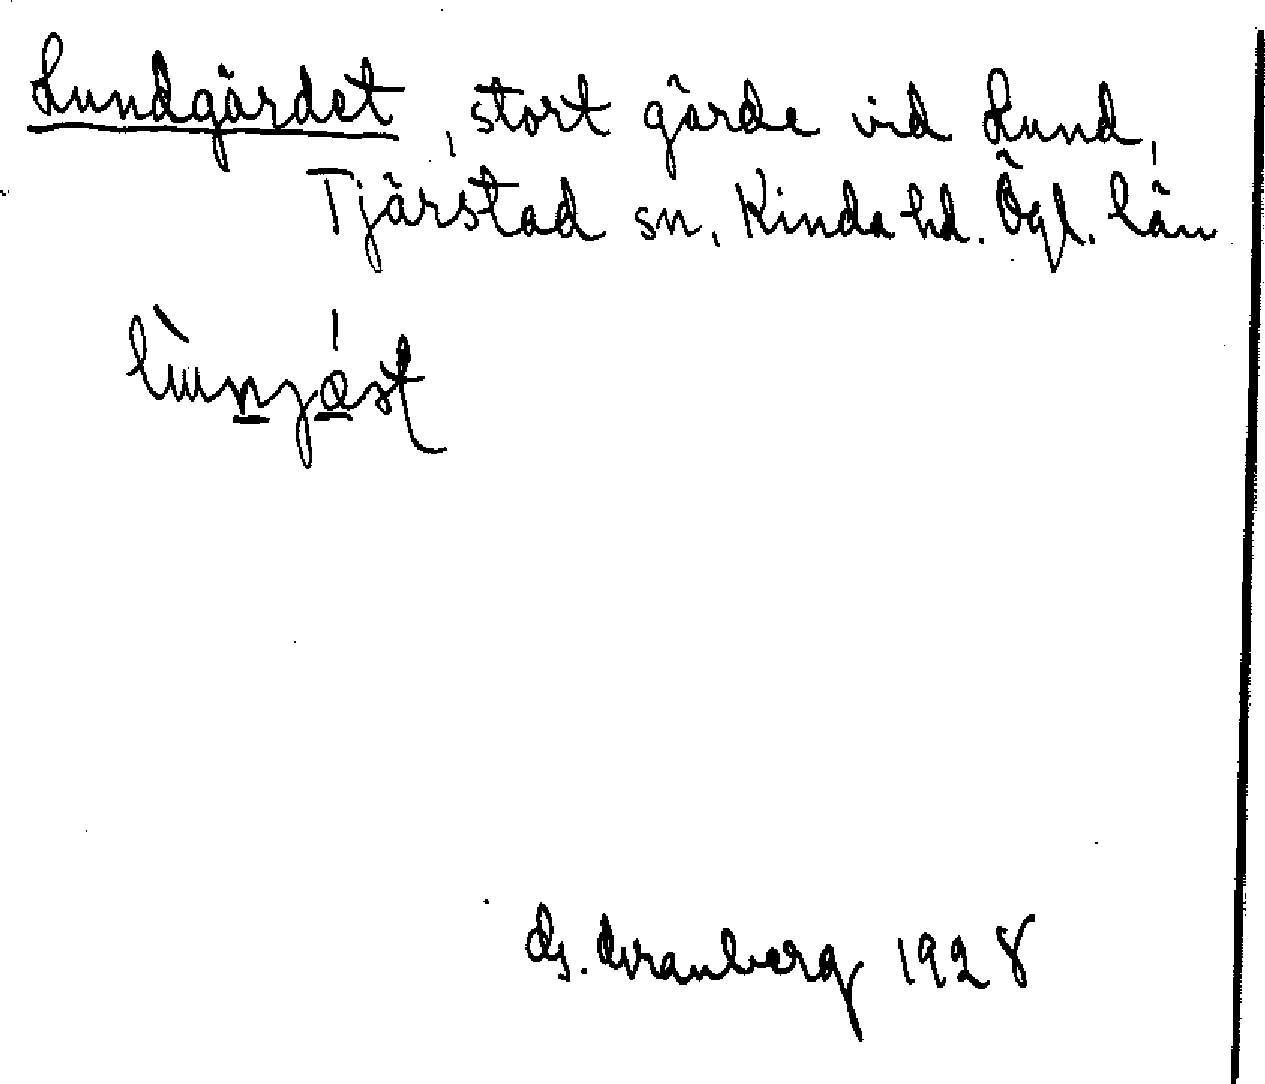 Lundgärdet, stort gärde vid Lund,
Tjärstad sn, Kinda hd. Ögl. län
G. Granberg 1928